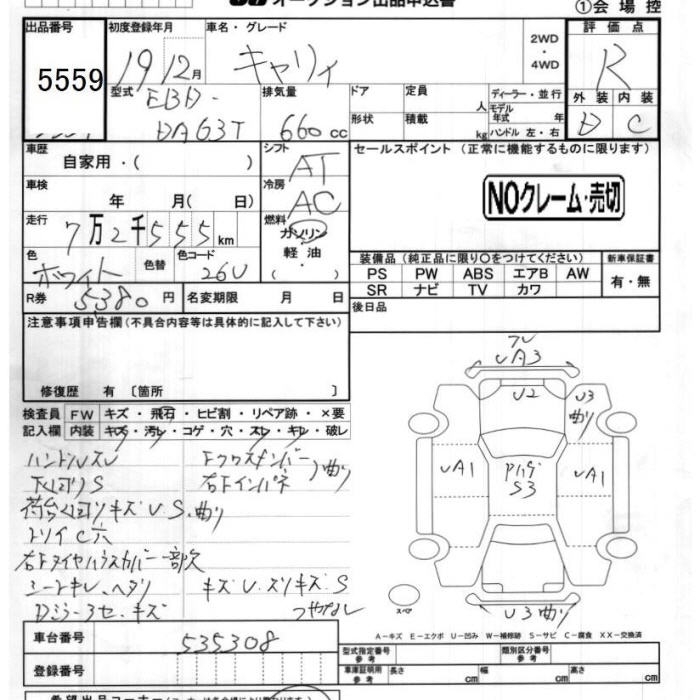 オークション出品申込書 ①会場控
出品番号 初度登録年月 車名・グレード 2WD・4WD 評価点
5559 19 12月 キャリィ R
型式 EBD-DA63T 排気量 660cc ドア 定員 人 ディーラー・並行 外装 内装
形状 積載 kg モデル年式 年式 ハンドル 左・右 D C
車歴 自家用・( ) シフト AT セールスポイント (正常に機能するものに限ります)
車検 年 月( 日) 冷房 AC NOクレーム・売切
走行 7万2千555km 燃料 ガソリン 軽油・( )
色 ホワイト 色替 色コード 26U 装備品 (純正品に限り○をつけてください) 新車保証書
PS PW ABS エアB AW 有・無
SR ナビ TV カワ
R券 5380円 名変期限 月 日 後日品
注意事項申告欄 (不具合内容等は具体的に記入して下さい)
修復歴 有 〔箇所 〕
検査員 FW キズ・飛石・ヒビ割・リペア跡・×要
記入欄 内装 キズ・汚レ・コゲ・穴・スレ・キレ・破レ
ハンドルスレ
下廻りS 右Fインパネ 曲り
荷台廻りキズU S、曲り
トリイC穴
右Fタイヤハウスカバー一部欠
シートキレ、ヘタリ キズU、スリキズS
Dミラー3セ、キズ ツヤなし
UA3
U2 U3 曲り
UA1 S3 UA1
スペア U3曲り
A-キズ E-エクボ U-凹み W-補修跡 S-サビ C-腐食 XX-交換済
車台番号 535308 型式指定番号 参考 類別区分番号 参考
登録番号 車庫証明用 参考 長さ cm 幅 cm 高さ cm
希望出品コーナー